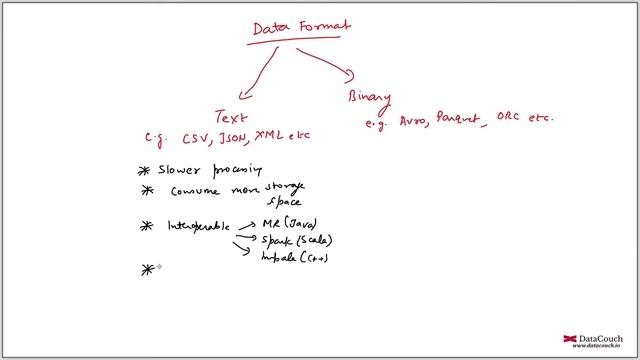 Data Format
Text
Binary
e.g. CSV, JSON, XML etc
e.g. Avro, Parquet, ORC etc.
* Slower processing
* Consume more storage
space
* Interoperable → MR (Java)
→ Spark (Scala)
→ Impala (C++)
*
DataCouch
www.datacouch.io